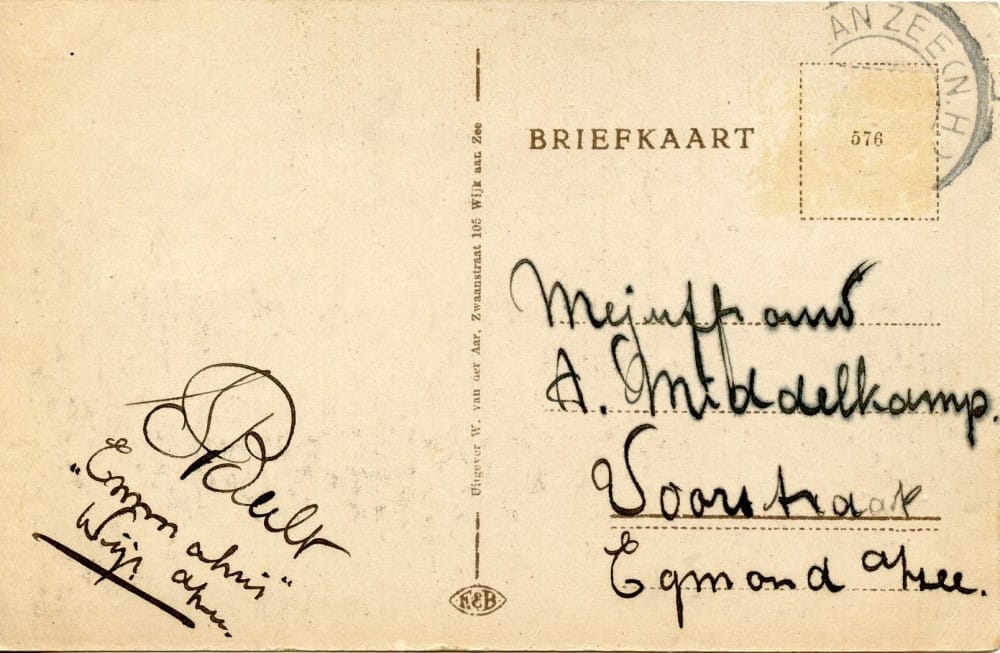 AN ZEE (N.H.)
BRIEFKAART
576
Uitgever W. van der Aar, Zwaanstraat 105 Wijk aan Zee
Mejuffrouw
A. Middelkamp.
Voorstraat
Egmond a/zee.
"Emma
Wijk a/zee.
F&B